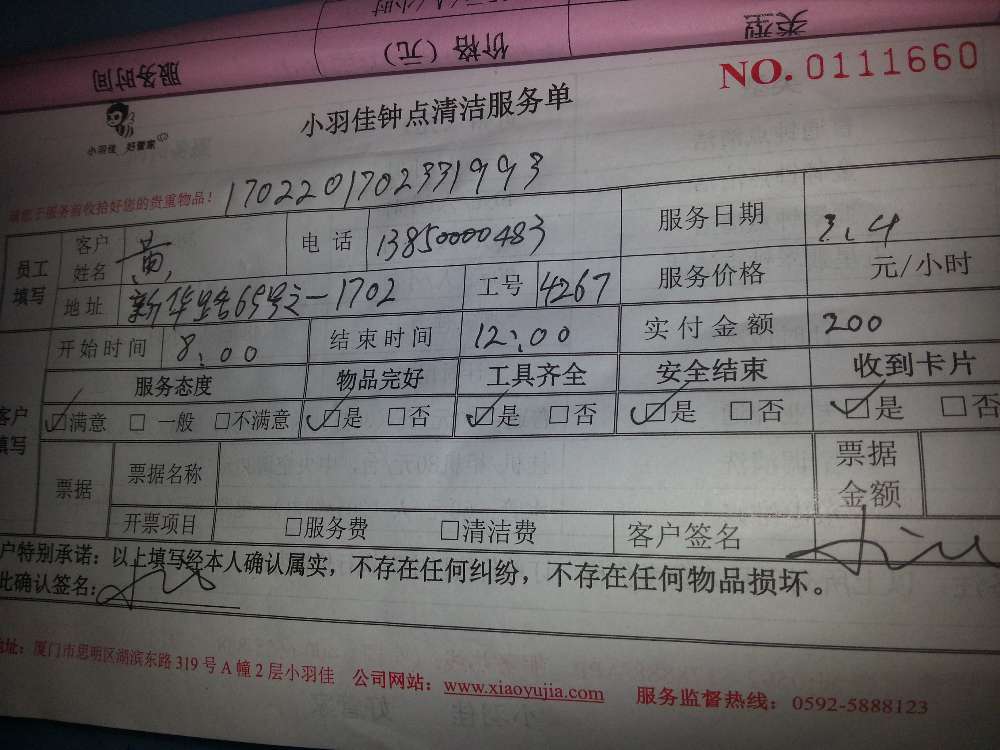 元/小时
类型 价格（元） 服务时间
NO. 0111660
小羽佳 好管家
小羽佳钟点清洁服务单
请您于服务前收拾好您的贵重物品！ 170220170233199 3
员工填写 客户姓名 黄 电话 13850000483 服务日期 3.4
地址 新华路69号之一1702 工号 4267 服务价格 元/小时
开始时间 8:00 结束时间 12:00 实付金额 200
客户填写 服务态度 物品完好 工具齐全 安全结束 收到卡片
☑满意 □一般 □不满意 ☑是 □否 ☑是 □否 ☑是 □否 ☑是 □否
票据 票据名称 票据金额
开票项目 □服务费 □清洁费 客户签名
户特别承诺：以上填写经本人确认属实，不存在任何纠纷，不存在任何物品损坏。
此确认签名：
地址：厦门市思明区湖滨东路319号A幢2层小羽佳 公司网站：www.xiaoyujia.com 服务监督热线：0592-5888123